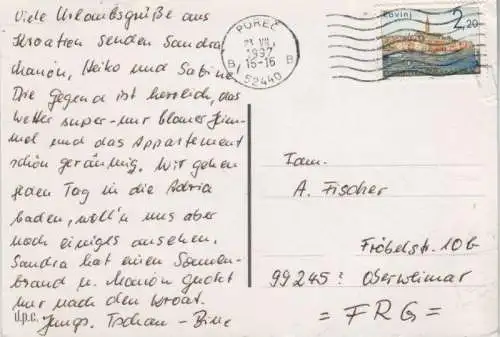 Viele Urlaubsgrüße aus
Kroatien senden Sandra
Marión, Heiko und Sabine
Die Gegend ist herrlich, das
Wetter super - nur blauer Him-
mel und das Appartement
schön geräumig. Wir gehen
jeden Tag in die Adria
baden, woll'n uns aber
noch einiges ansehen.
Sandra hat einen Sonnen-
brand u. Marión guckt
nur nach den kroat.
Jungs. Tschau -
d.p.c.
POREČ
1997
16-16
B B
52440
Rovinj
2,20
Fam.
A. Fischer
Fröbelstr. 10b
99245 Oberweimar
= FRG =